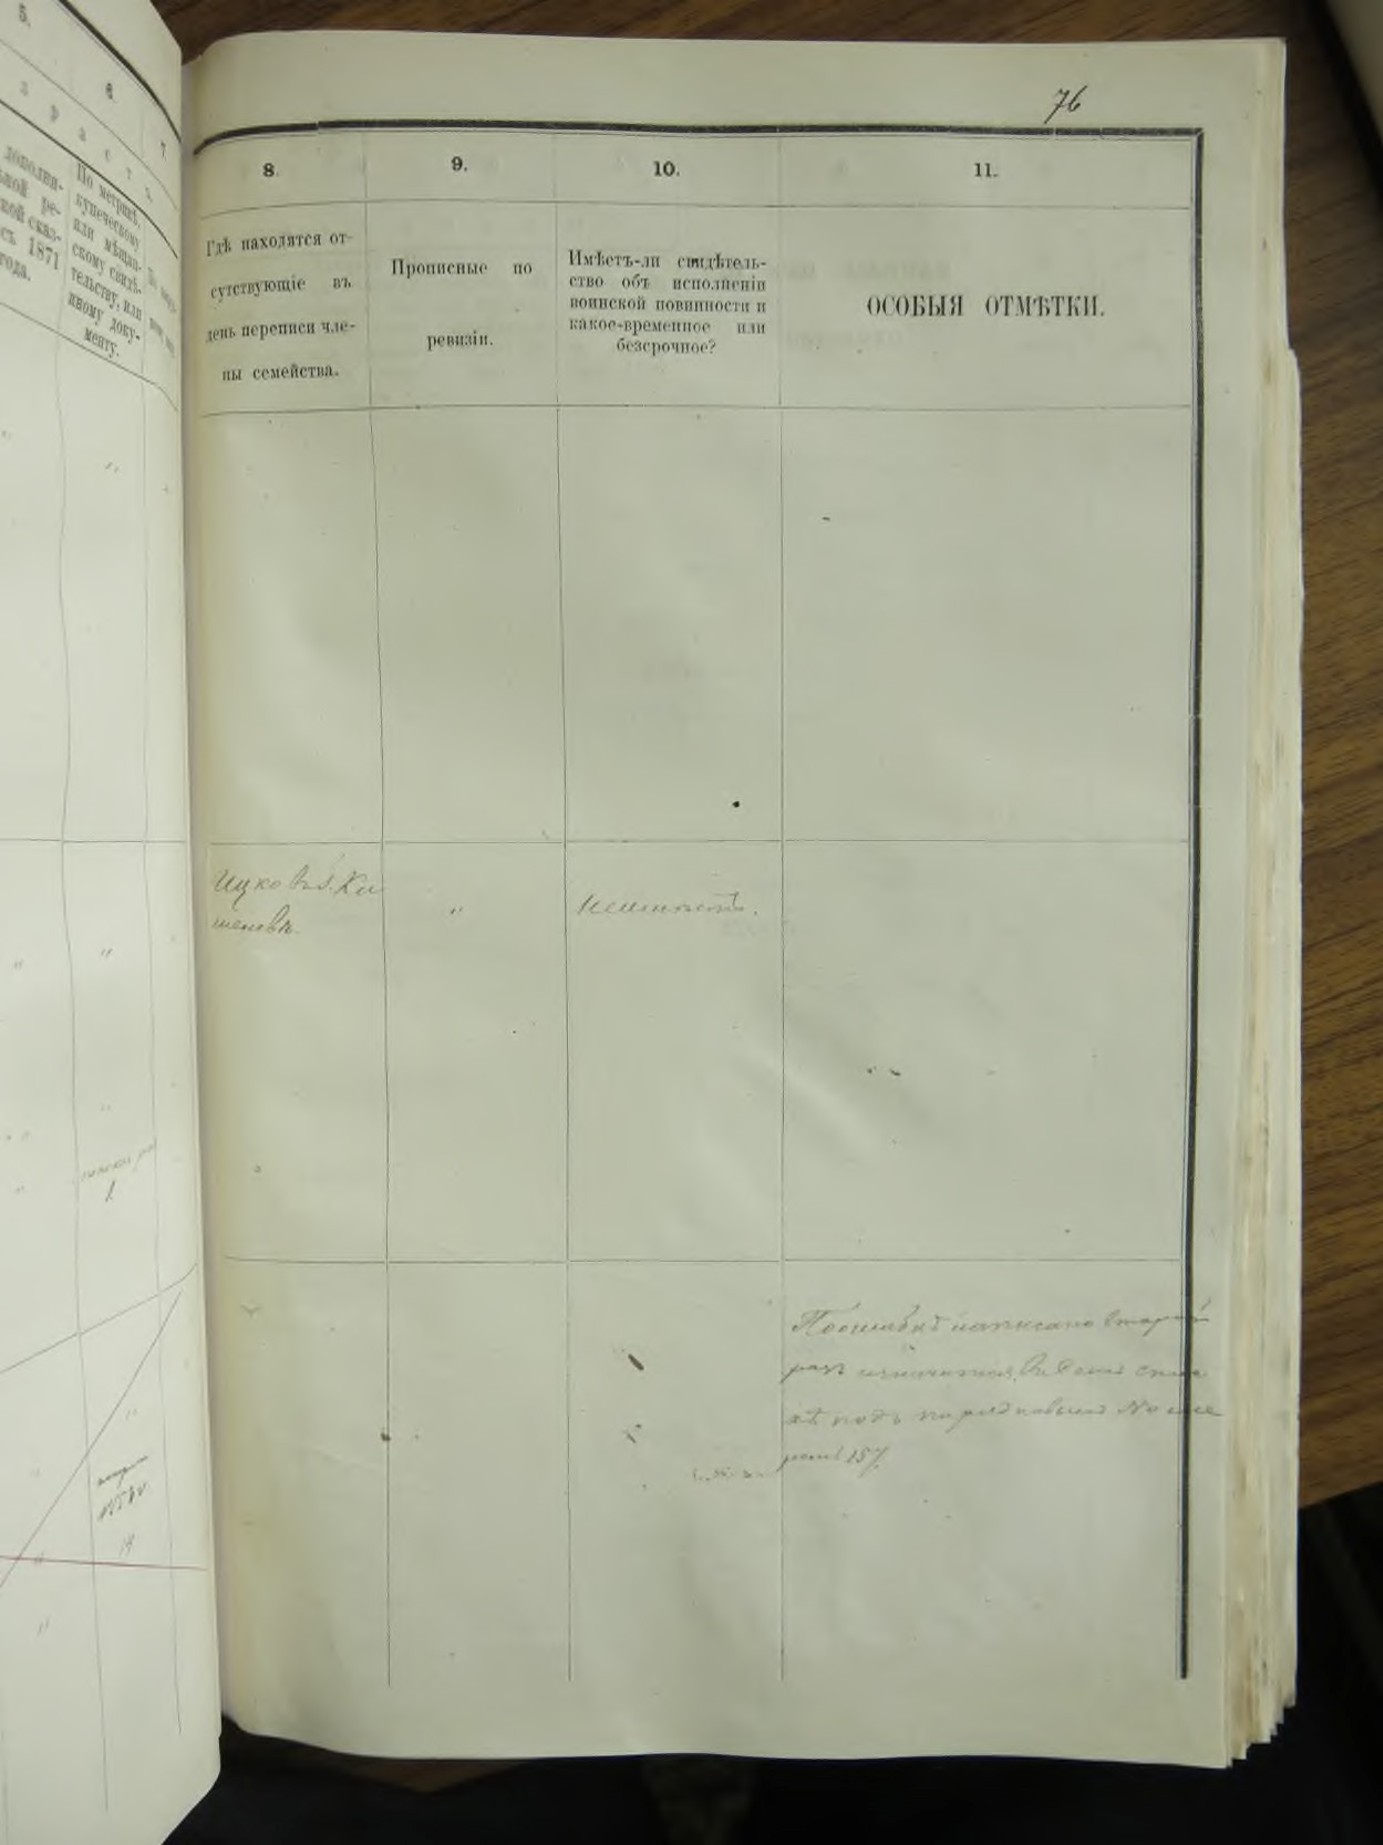 5.
6.
7.
дополни-
ной ре-
ской сказ-
съ 1871
года.
По метрикѣ,
купеческому
или мѣщан-
скому свидѣ-
тельству, или
иному доку-
менту.
76
8.
9.
10.
11.
Гдѣ находятся от-
сутствующіе въ
день переписи чле-
ны семейства.
Прописные по
ревизіи.
Имѣетъ-ли свидѣтель-
ство объ исполненіи
воинской повинности и
какое-временное или
безсрочное?
ОСОБЫЯ ОТМѢТКИ.
Ицко въ г. Ки
шеневѣ.
"
неимѣетъ.
По ошибкѣ написано второй
разъ значится въ семъ спис
кѣ подъ порядковымъ № 
157.
1
14